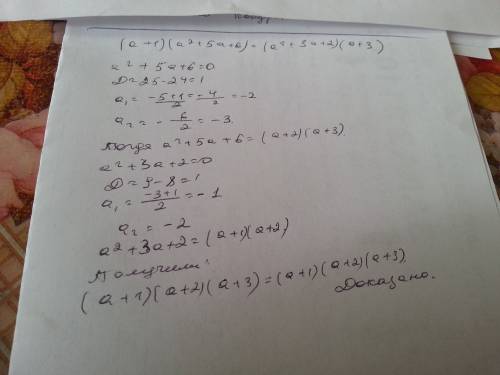 (a+1)(a²+5a+6)=(a²+3a+2)(a+3)
a²+5a+6=0
D=25-24=1
a₁=(-5+1)/2=-4/2=-2
a₂=-6/2=-3.
Тогда a²+5a+6=(a+2)(a+3)
a²+3a+2=0
D=9-8=1
a₁=(-3+1)/2=-1
a₂=-2
a²+3a+2=(a+1)(a+2)
Получили:
(a+1)(a+2)(a+3)=(a+1)(a+2)(a+3)
Доказано.